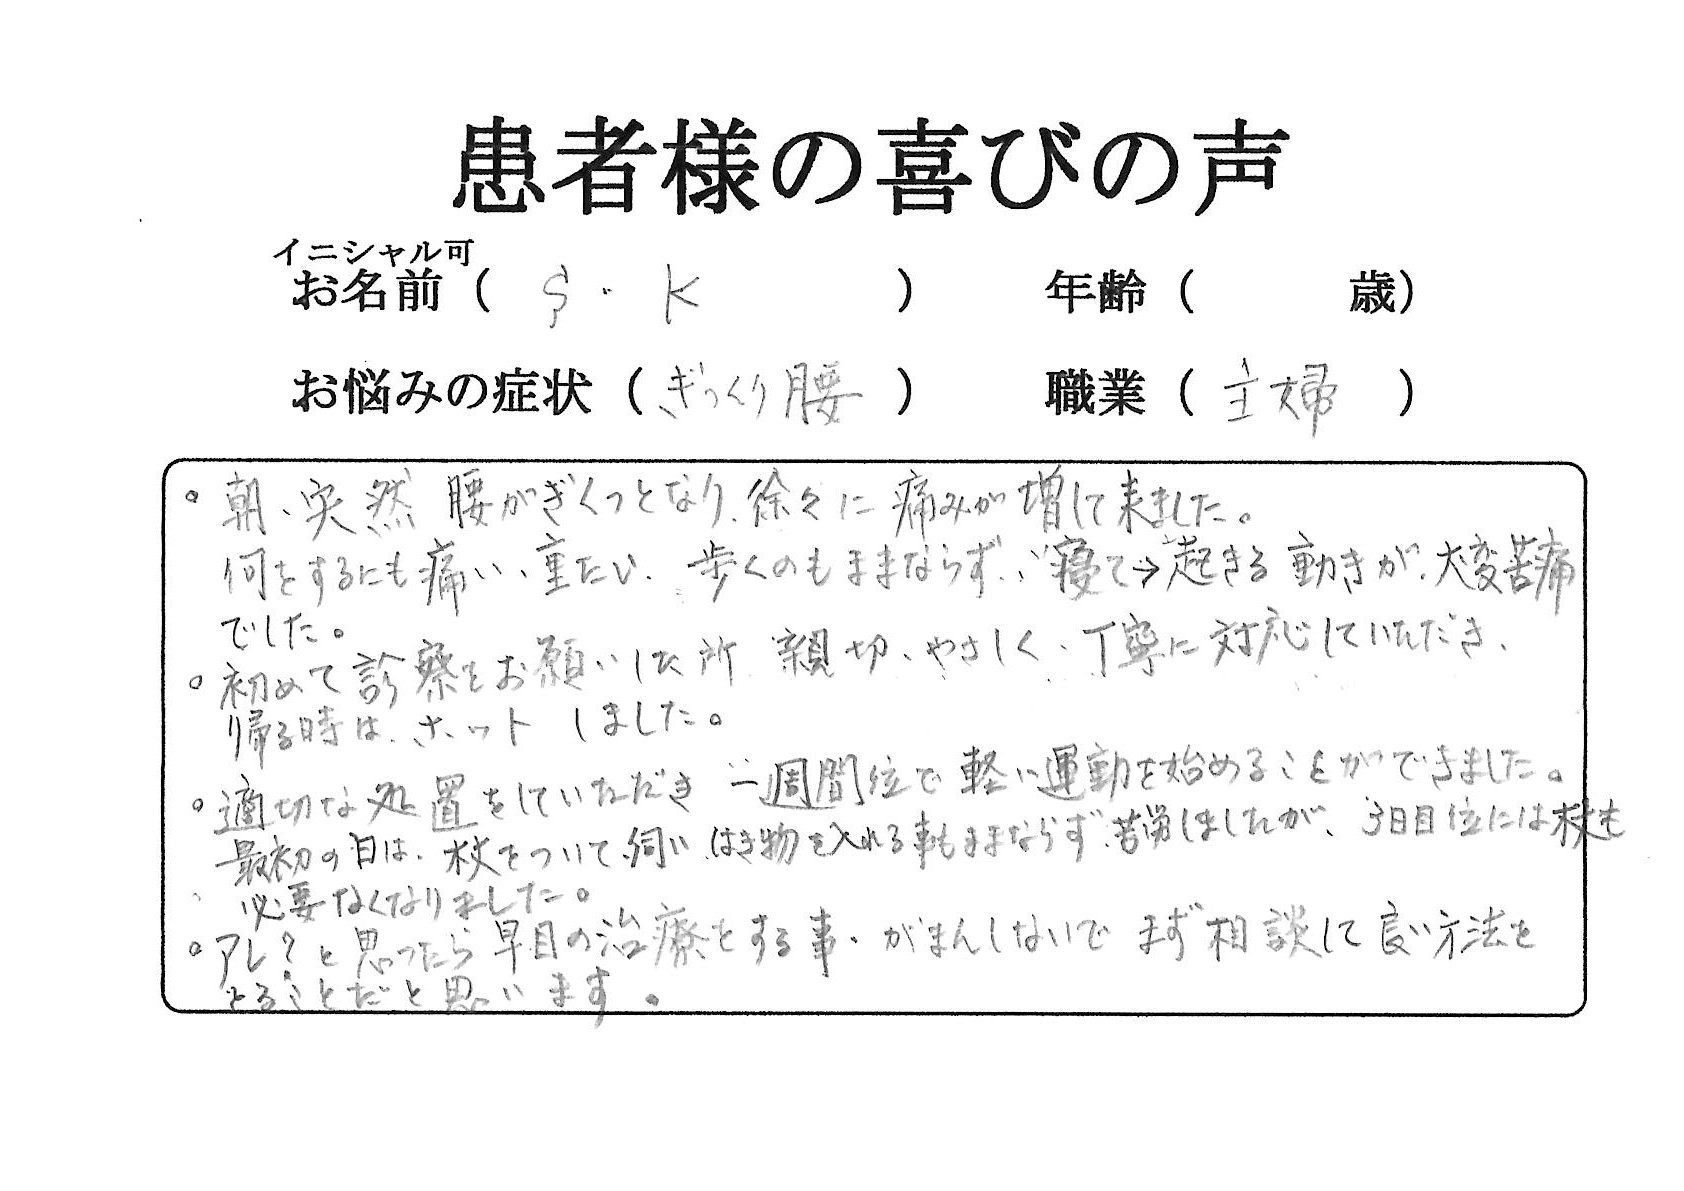 患者様の喜びの声
イニシャル可
お名前（ S・K ） 年齢（ 歳）
お悩みの症状（ぎっくり腰） 職業（主婦）
。朝、突然 腰がぎくっとなり、徐々に痛みが増して来ました。
何をするにも痛い、重たい、歩くのもままならず、寝て→起きる動きが、大変苦痛
でした。
。初めて診察をお願いした所 親切、やさしく、丁寧に対応していただき、
帰る時は、ホット しました。
。適切な処置をしていただき 一週間位で軽い運動を始めることができました。
最初の日は、杖をついて、伺い、はき物を入れる事もままならず、苦労しましたが、3日目位には杖も
必要なくなりました。
。アレ？と思ったら早目の治療をする事・がまんしないで まず相談して良い方法を
とることだと思います。